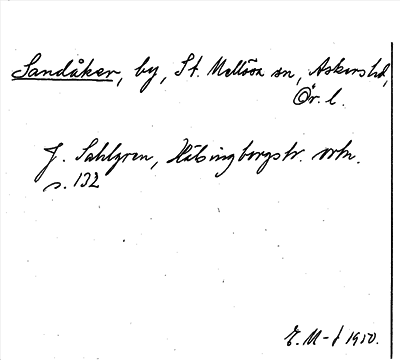 Sandåker, by, St. Mellösa sn, Askers hd,
Ör. l.
J. Sahlgren, Hälsingborgstr. ortn.
s. 132
E. M-f 1950.